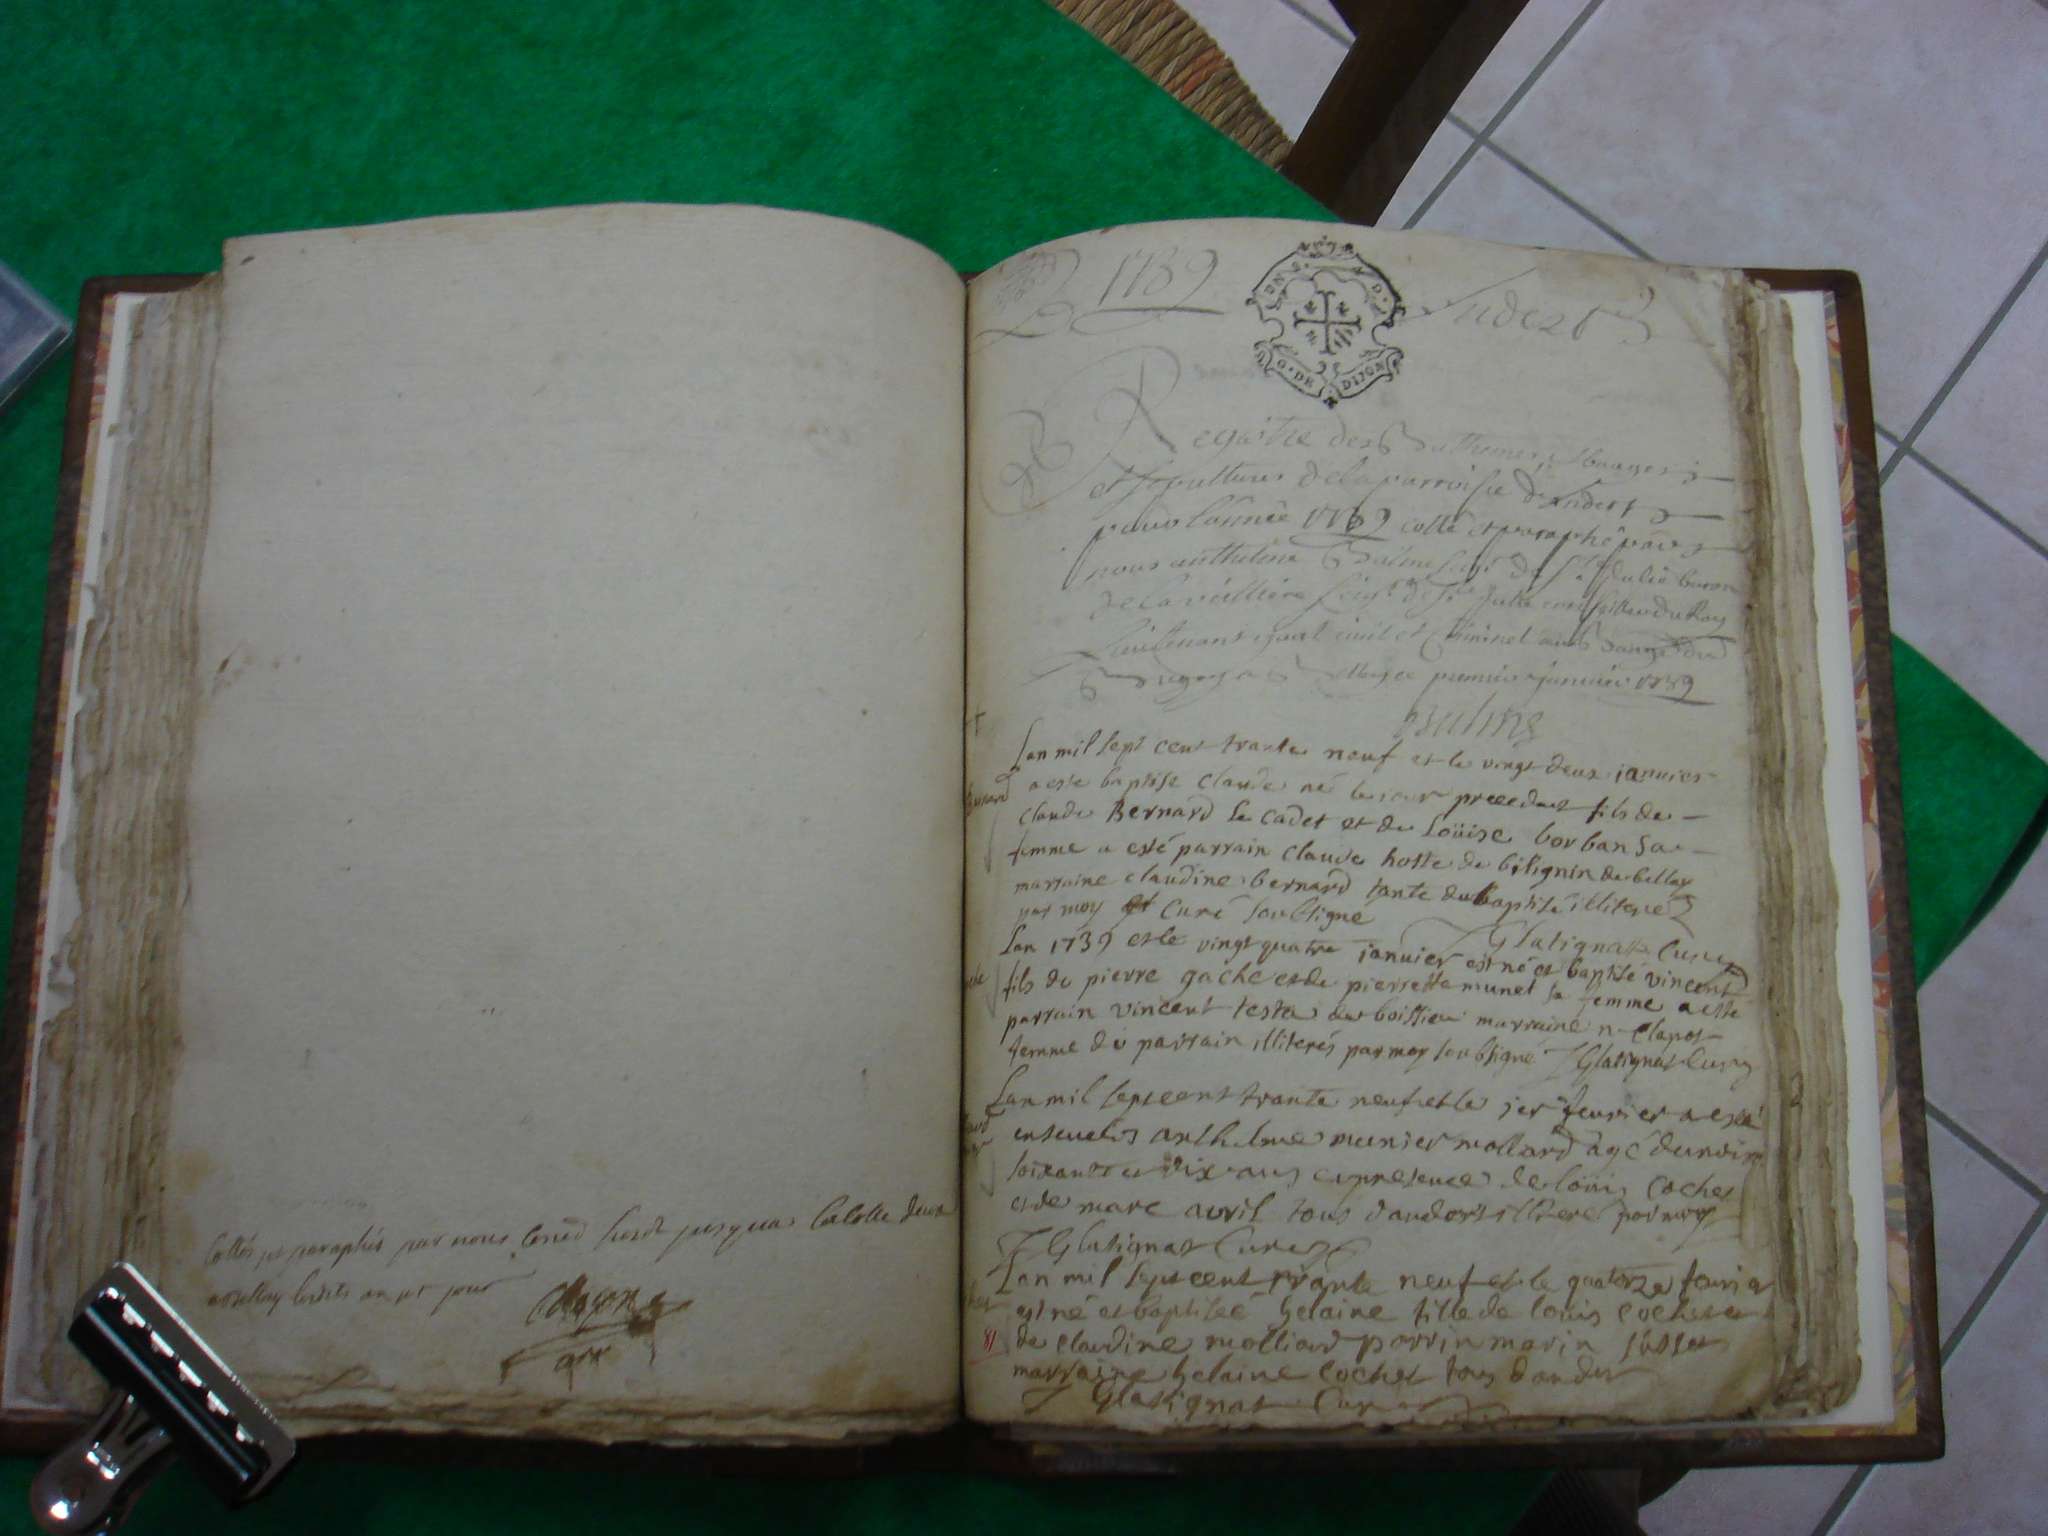 Cottés et paraphés par nous
jour
1739
Andert
G. DE DIJON
Registre des Bathemes
et sepultures de la parroisse d'Andert
pour l'année 1739 cotté et paraphé par
nous anthelme Balme seigr de Ste Julie baron
de la vellière seigr de Ste Julie conseiller du Roy
Lieutenant gnal civil et Criminel au Baage du
Bugey a Belley ce premier janvier 1739
Balme
Lan mil sept cent trante neuf et le vingt deux januier
Bernard
a este baptisé claude né le iour precedent fils de
claude Bernard le cadet et de Loüise borban sa
femme a esté parrain claude hoste de bilignin de belley
marraine claudine bernard tante du baptisé illiterés
par moy curé soubsigné
Glatignat Curé
Lan 1739 et le vingt quatre januier est né et baptisé vincent
fils de pierre gache et de pierrette munet sa femme a esté
parrain vincent teste marraine n clapot
femme du parrain illiterés par moy soubsigné Glatignat Curé
Lan mil sept cent trante neuf et le 1er feurier a esté
enseuelis anthelme munier mollard agé denviron
soixante et dix ans en presence de loüis cochet
et de marc avril tous dandert illiteré par moy
Glatignat Curé
Lan mil sept cent trante neuf et le quatorze feurier
est né et baptisée helaine fille de louis cochet et
81
de claudine molliard parrin marin
marraine helaine cochet tous dandert
Glatignat Curé